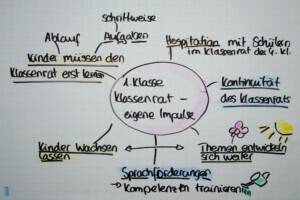 schrittweise
Ablauf
Aufgaben
Kinder müssen den
Klassenrat erst lernen
Hospitation mit Schülern
im Klassenrat der 4. Kl.
1. Klasse
Klassenrat –
eigene Impulse
Kontinuität
des Klassenrats
Kinder wachsen
lassen
Themen entwickeln
sich weiter
Sprachförderungen
→ Kompetenzen trainieren